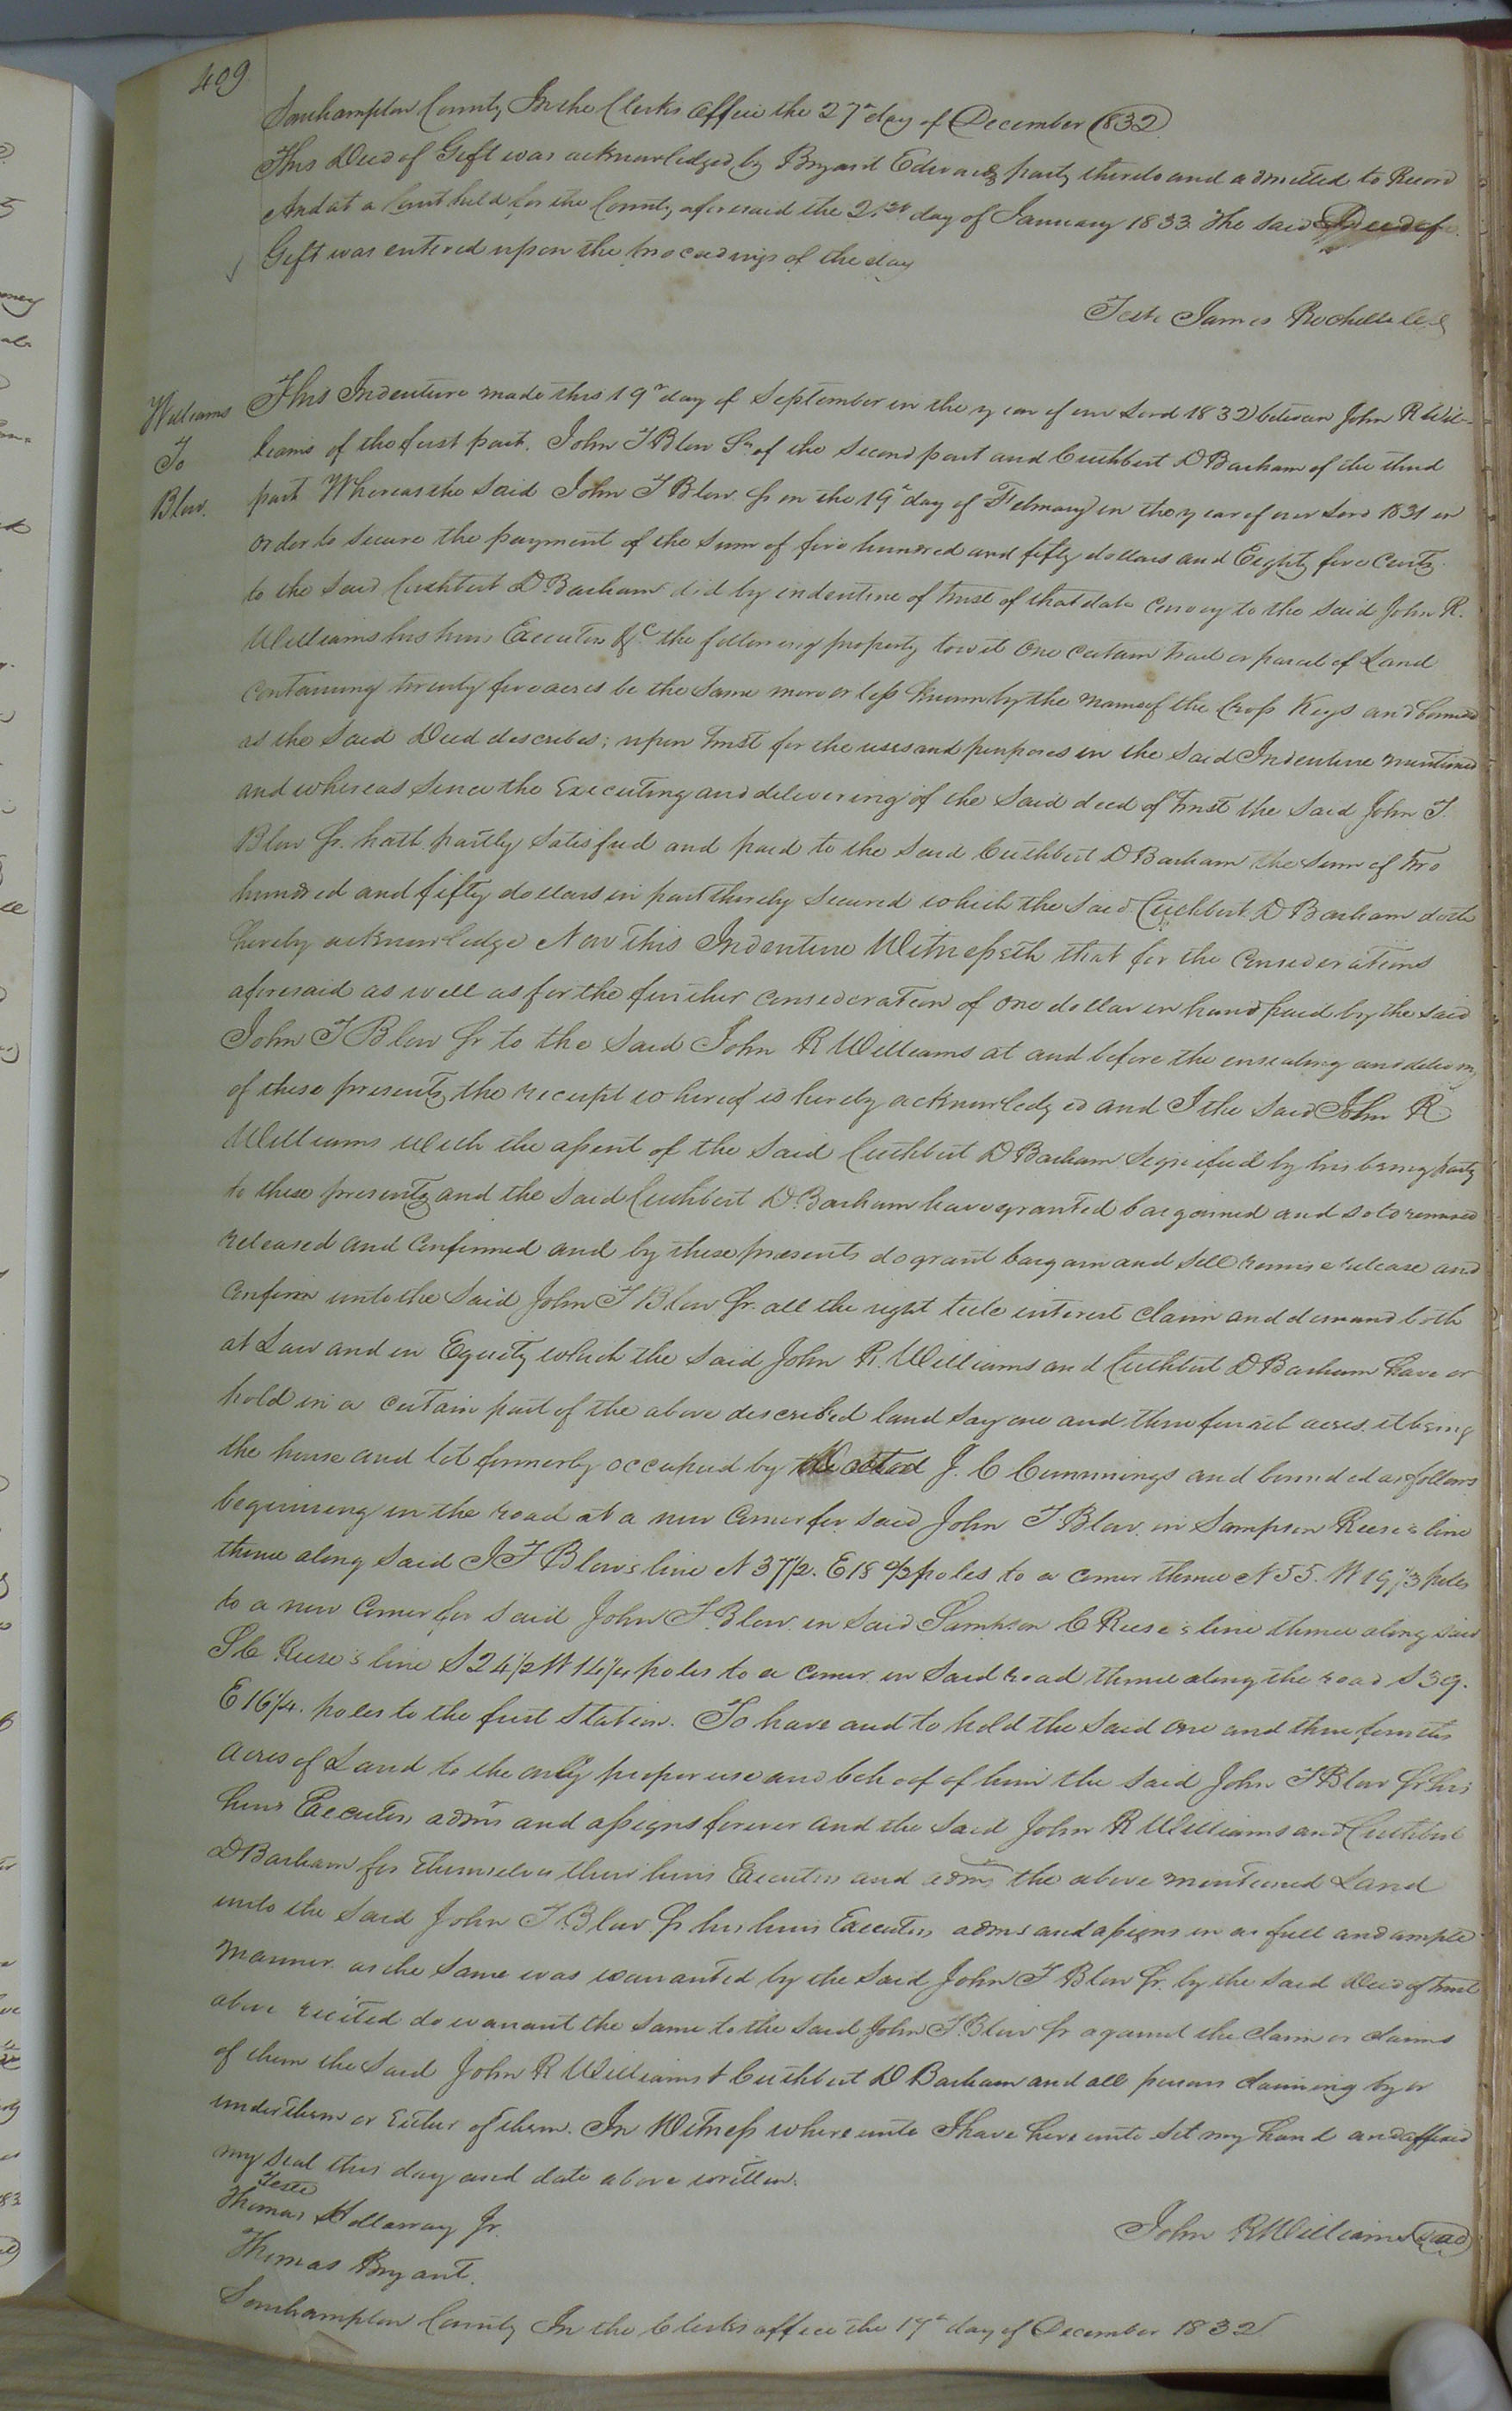 409
Southampton County In the Clerks Office the 27th day of December 1832
This Deed of Gift was acknowledged by Bryant Edwards party thereto and admitted to Record
And at a Court held for the County aforesaid the 21st day of January 1833 the said Deed of
Gift was entered upon the proceedings of the day
Teste James Rochelle
Williams
To
Blow.
This Indenture made this 19th day of September in the year of our Lord 1832 between John R Wil-
liams of the first part. John T Blow Sr of the second part and Cuthbert D Barham of the third
part Whereas the said John T Blow Sr on the 19th day of February in the year of our Lord 1831 in
order to secure the payment of the sum of five hundred and fifty dollars and Eighty five Cents
to the said Cuthbert D Barham did by indenture of trust of that date convey to the said John R.
Williams his heirs Executors &c the following property towit One certain tract or parcel of Land
containing twenty five acres be the same more or less known by the name of the Cross Keys and bounded
as the said Deed describes; upon trust for the uses and purposes in the said Indenture mentioned
and whereas since the Executing and delivering of the said deed of trust the said John T.
Blow Sr. hath partly satisfied and paid to the said Cuthbert D Barham the sum of two
hundred and fifty dollars in part thereby secured which the said Cuthbert D Barham doth
hereby acknowledge Now this Indenture Witnesseth that for the considerations
aforesaid as well as for the further consideration of one dollar in hand paid by the said
John T Blow Sr to the said John R Williams at and before the ensealing and delivery
of these presents, the receipt whereof is hereby acknowledged and I the said John R
Williams with the assent of the said Cuthbert D Barham signified by his being party
to these presents and the said Cuthbert D. Barham have granted bargained and sold remised
released and confirmed and by these presents do grant bargain and sell remise release and
Confirm unto the said John T Blow Sr. all the right title interest claim and demand both
at Law and in Equity which the said John R. Williams and Cuthbert D Barham have or
hold in a certain part of the above described land say one and three fourth acres. it being
the house and lot formerly occupied by J. C Cummings and bounded as follows
beginning in the road at a new corner for said John T Blow. in Sampson Reese's line
thence along said J T Blows line N 37½. E 18 poles to a corner thence N 55. W 19⅓ poles
to a new corner for said John T. Blow. in said Sampson C Reese's line thence along said
S C Reese's line S 24½ W 14¼ poles to a corner in said road thence along the road S 39.
E 16¼. poles to the first station. To have and to hold the said one and three fourths
acres of Land to the only proper use and behoof of him the said John T Blow Sr his
heirs Executors admrs and assigns forever and the said John R Williams and Cuthbert
D Barham for themselves their heirs Executors and admrs the above mentioned Land
unto the said John T. Blow Sr his heirs Executors admrs and assigns in as full and ample
manner as the same was warranted by the said John T Blow Sr. by the said Deed of trust
above recited do warrant the same to the said John T. Blow Sr against the claim or claims
of them the said John R Williams & Cuthbert D Barham and all persons claiming by or
under them or Either of them. In Witness whereunto I have hereunto set my hand and affixed
my seal this day and date above written.
Teste
Thomas Hollaway Jr.
Thomas Bryant.
John R Williams seal
Southampton County In the Clerks office the 19th day of December 1832